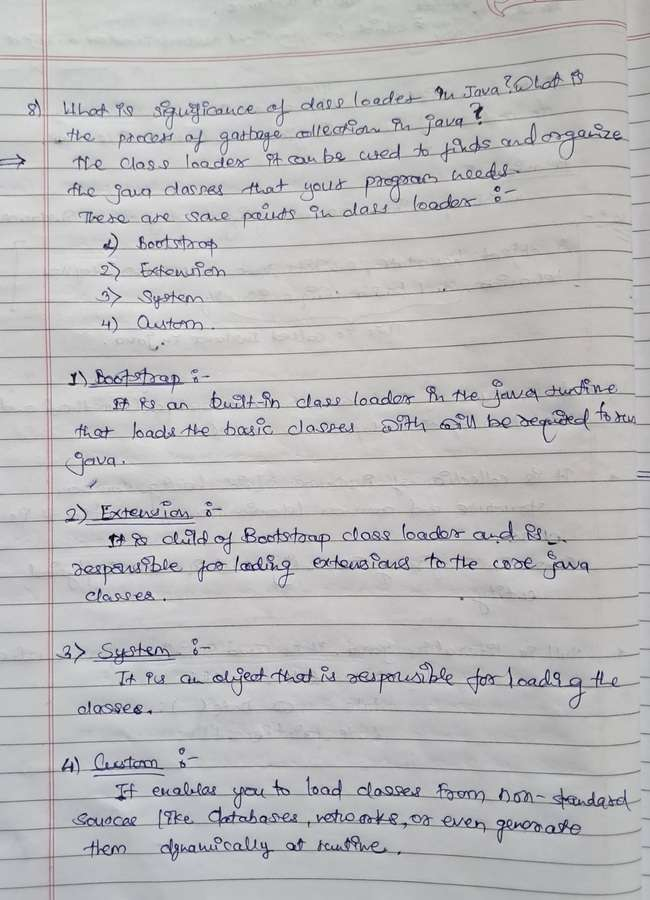 8) What is significance of class loader in Java? What is
the process of garbage collection in java?
⇒ The class loader it can be used to finds and organize
the java classes that your program needs.
There are some points in class loader :-
1) Bootstrap
2) Extension
3) System
4) Custom.
1) Bootstrap :-
It is an built-in class loader in the java runtime
that loads the basic classes with will be required to run
java.
2) Extension :-
It is child of Bootstrap class loader and is
responsible for loading extensions to the core java
classes.
3) System :-
It is an object that is responsible for loading the
classes.
4) Custom :-
It enables you to load classes from non-standard
sources like databases, networks, or even generate
them dynamically at runtime.